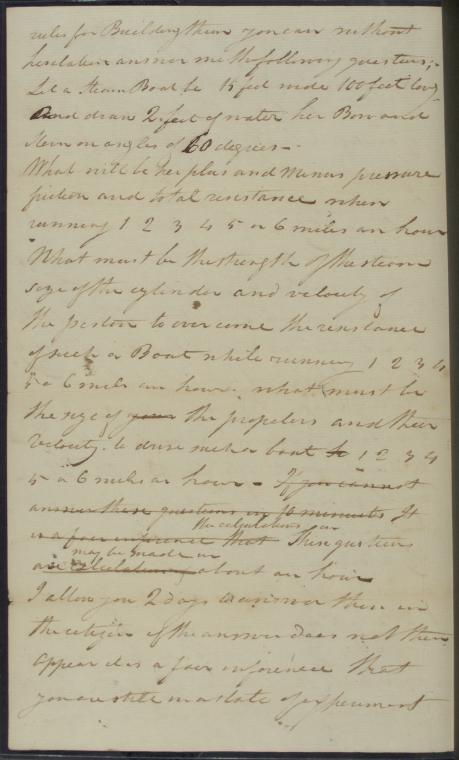 rules for Building them you can without
hesitation answer me the following questions;-
Let a Steam Boat be 18 feet wide 100 feet long
And draw 2 feet of water her Bow and
Stern on angles of 60 degrees -
What will be her plus and Minus pressure
friction and total resistance when
running 1 2 3 4 5 or 6 miles an hour
What must be the strength of the steam
size of the cylinder and velocity of
the piston to over come the resistance
of such a Boat while running 1 2 3 4
5 or 6 mile an hour. what must be
the size of your the propelers and their
velocity. to drive such a boat to 1 2 3 4
5 or 6 miles an hour - If you cannot
answer these questions in 10 minuets It
the calculations on
is a fair inference that These questions
may be made in
are calculations about an hour
I allow you 2 days to answer them in
the citizen if the answer does not then
appear it is a fair inference that
you are still in a state of experiment